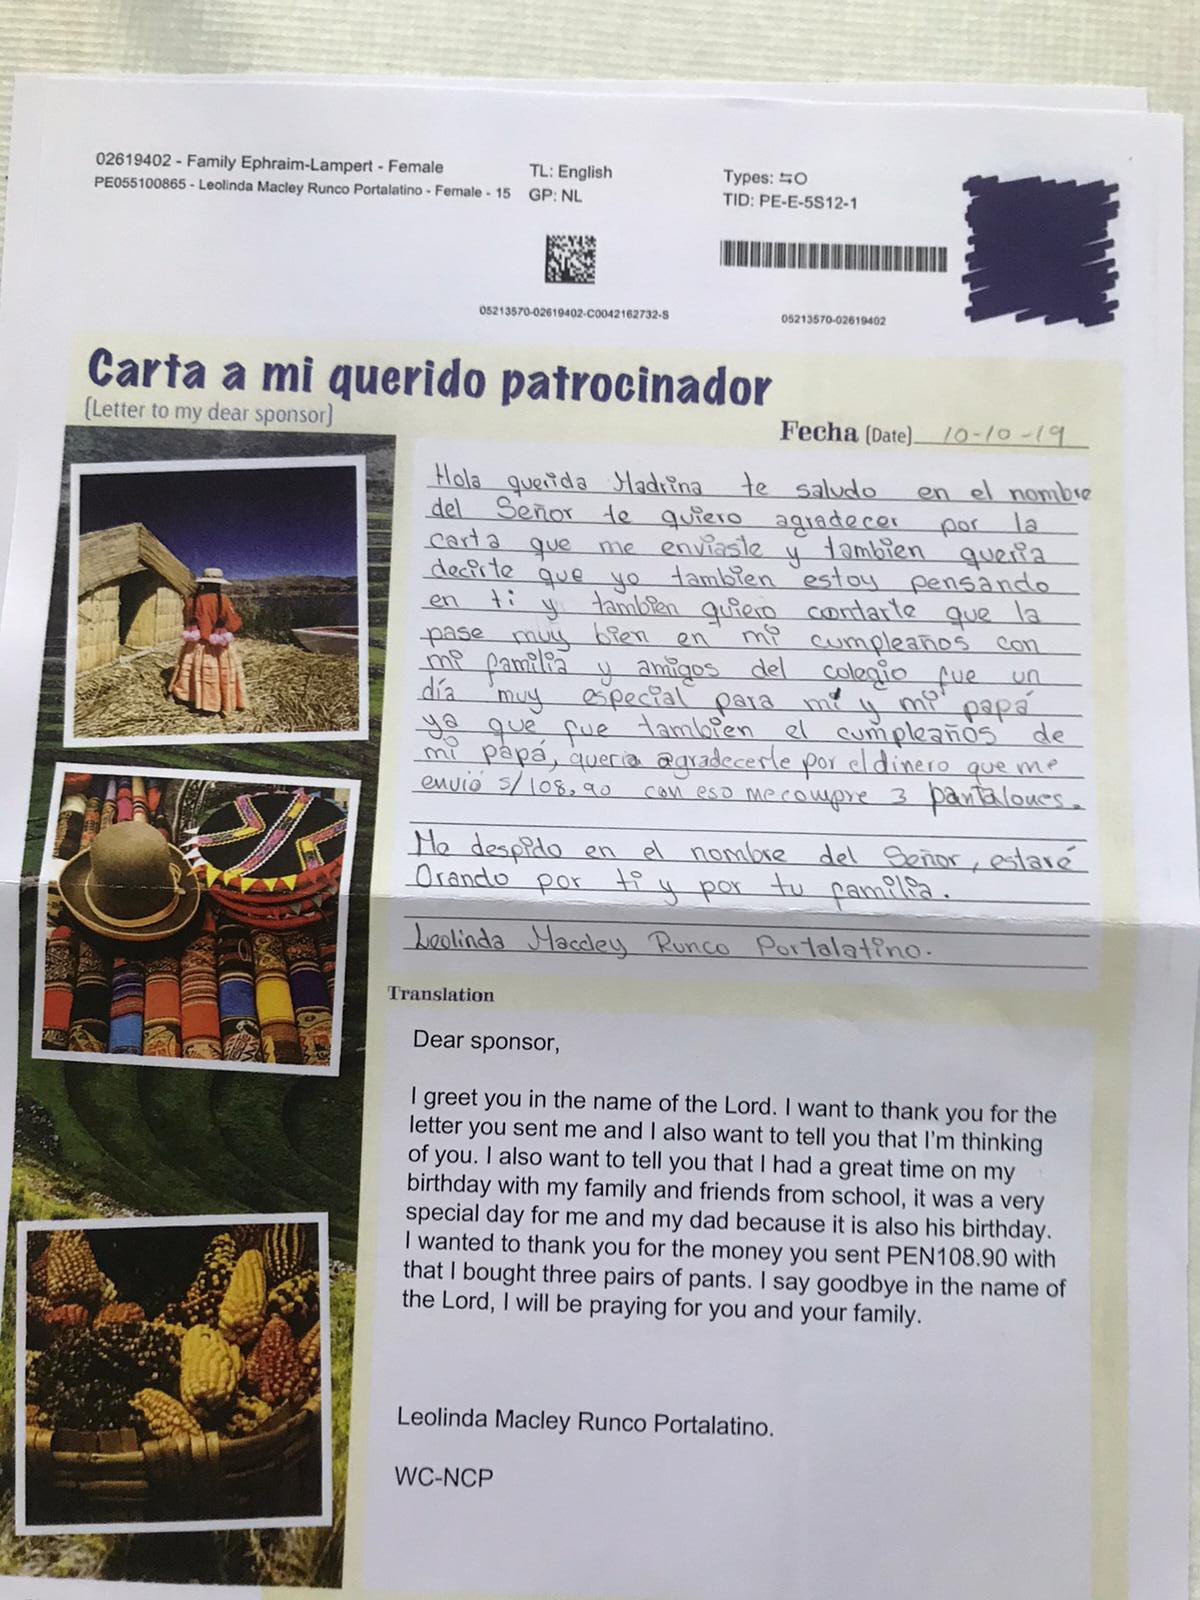 02619402 - Family Ephraim-Lampert - Female
PE055100865 - Leolinda Macley Runco Portalatino - Female - 15
TL: English
GP: NL
Types: ⇆O
TID: PE-E-5S12-1
05213570-02619402-C0042162732-S
05213570-02619402
Carta a mi querido patrocinador
(Letter to my dear sponsor)
Fecha (Date) 10-10-19
Hola querida Madrina te saludo en el nombre
del Señor te quiero agradecer por la
carta que me enviaste y tambien queria
decirte que yo tambien estoy pensando
en ti y tambien quiero contarte que la
pase muy bien en mi cumpleaños con
mi familia y amigos del colegio fue un
día muy especial para mi y mi papá
ya que fue tambien el cumpleaños de
mi papá, queria agradecerle por el dinero que me
envió S/108,90 con eso me compre 3 pantalones.
Me despido en el nombre del Señor, estaré
Orando por ti y por tu familia.
Leolinda Macley Runco Portalatino.
Translation
Dear sponsor,
I greet you in the name of the Lord. I want to thank you for the
letter you sent me and I also want to tell you that I'm thinking
of you. I also want to tell you that I had a great time on my
birthday with my family and friends from school, it was a very
special day for me and my dad because it is also his birthday.
I wanted to thank you for the money you sent PEN108.90 with
that I bought three pairs of pants. I say goodbye in the name of
the Lord, I will be praying for you and your family.
Leolinda Macley Runco Portalatino.
WC-NCP